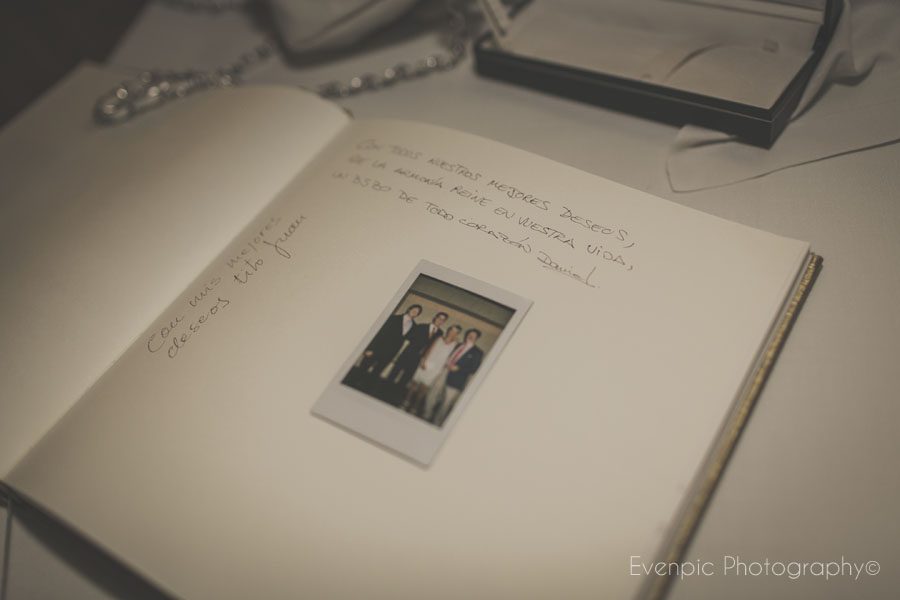 CON TODOS NUESTROS MEJORES DESEOS,
QE LA ARMONÍA REINE EN VUESTRA VIDA,
UN BSZO DE TODO CORAZÓN Daniel
Con mis mejores
deseos tito Juan
Evenpic Photography©